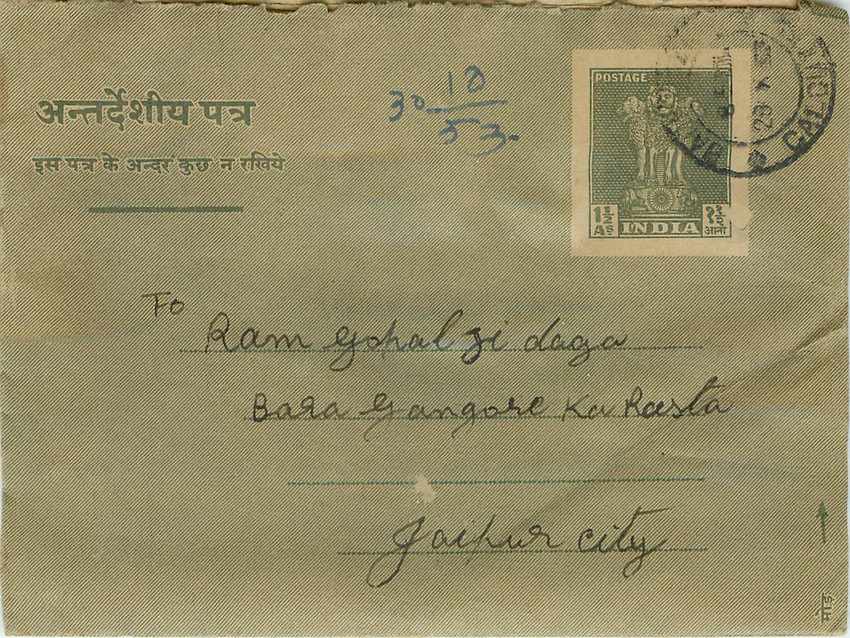 अन्तर्देशीय पत्र
इस पत्र के अन्दर कुछ न रखिये
30 10
53
POSTAGE
1½ As INDIA १½ आना
To
Ram Gopal Ji daga
Bara Gangore Ka Rasta
Jaipur City
मोड़